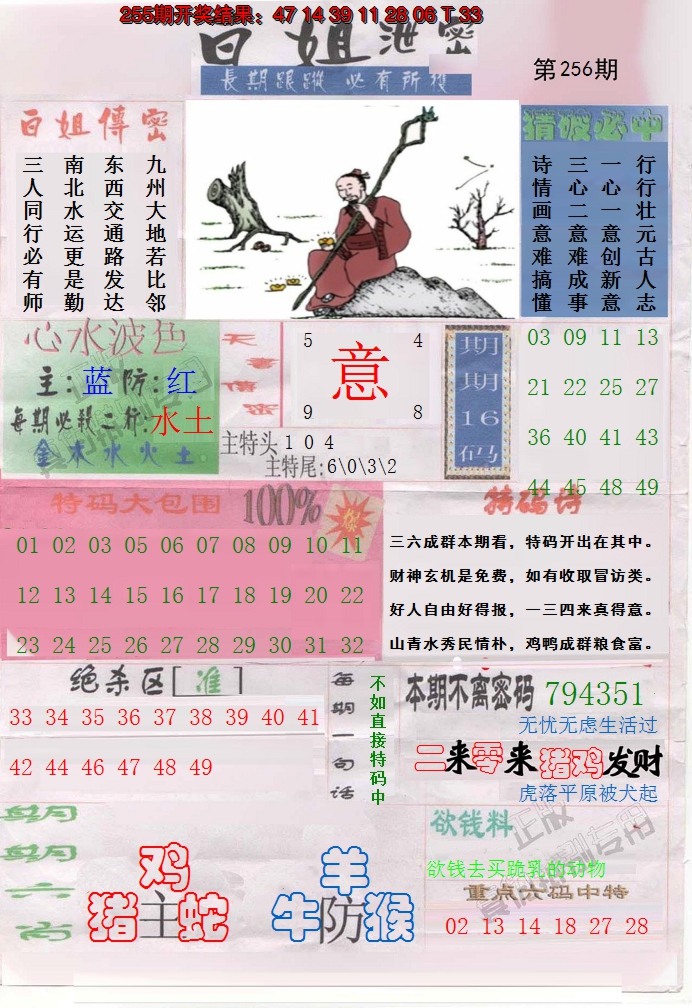 255期开奖结果：47 14 39 11 28 06 T 33
白姐泄密
第256期
長期跟蹤 必有所獲
白姐傳密
九州大地若比邻
东西交通路发达
南北水运更是勤
三人同行必有师
猜波必中
行行壮元古人志
一心一意创新意
三心二意难成事
诗情画意难搞懂
心水波色
主：蓝 防：红
每期必殺二行：水土
金木水火土
天書信密
5 4
意
9 8
主特头 1 0 4
主特尾：6\0\3\2
期期16码
03 09 11 13
21 22 25 27
36 40 41 43
44 45 48 49
特码大包围 100%
01 02 03 05 06 07 08 09 10 11
12 13 14 15 16 17 18 19 20 22
23 24 25 26 27 28 29 30 31 32
特码诗
三六成群本期看，特码开出在其中。
财神玄机是免费，如有收取冒访类。
好人自由好得报，一三四来真得意。
山青水秀民情朴，鸡鸭成群粮食富。
绝杀区[准]
33 34 35 36 37 38 39 40 41
42 44 46 47 48 49
每期一句话
不如直接特码中
本期不离密码 794351
无忧无虑生活过
二来零来猪鸡发财
虎落平原被犬起
每期六肖
鸡
猪主蛇
羊
牛防猴
欲钱料
欲钱去买跪乳的动物
重点六码中特
02 13 14 18 27 28